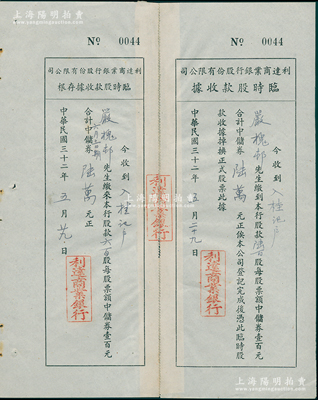 上海陽明拍賣
www.ymauction.com
No 0044
利達商業銀行股份有限公司
臨時股款收據
今收到入桂記戶
嚴槐邨先生繳到本行股款陸百股每股票額中儲券壹百元
合計中儲券陸萬元正俟本公司登記完成後憑此臨時股
款收據掉換正式股票此據
中華民國三十二年五月二十九日
利達商業銀行
利達商業銀行
No 0044
利達商業銀行股份有限公司
臨時股款收據存根
今收到入桂記戶
嚴槐邨先生繳來本行股款六百股每股票額中儲券壹百元
合計中儲券陸萬元正
中華民國三十二年五月廿九日
利達商業銀行